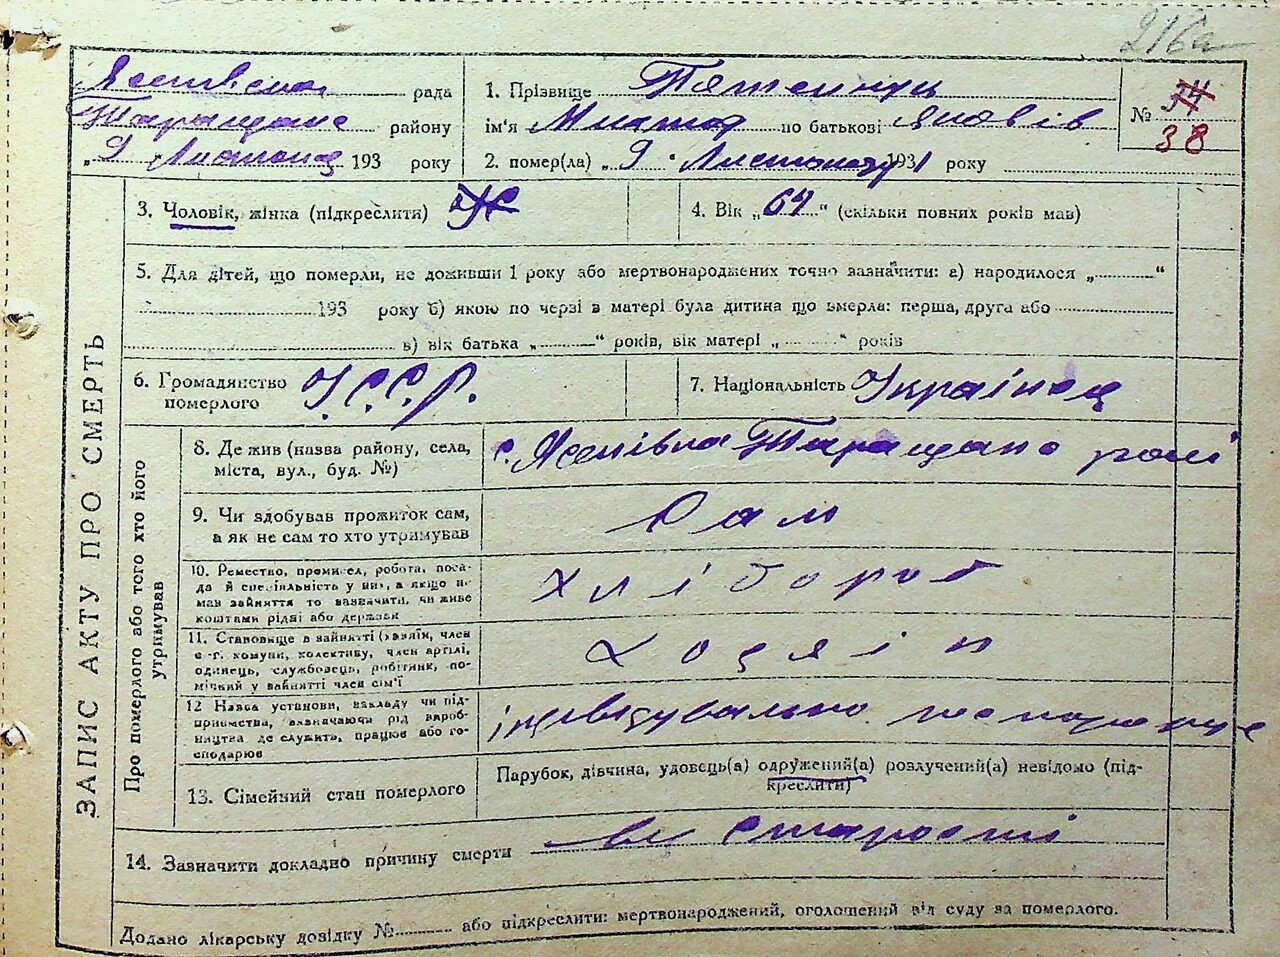 216а
Ясенівська рада
Таращанс району
„9 Листопад 193 року
1. Прізвище
ім'я по батькові Яковів
2. помер(ла) „9 " Листопаду 1931 року
№ 38
ЗАПИС АКТУ ПРО СМЕРТЬ
3. Чоловік, жінка (підкреслити)
4. Вік „64" (скільки повних років мав)
5. Для дітей, що померли, не доживши 1 року або мертвонароджених точно зазначити: а) народилося „ “
193 року б) якою по черзі в матері була дитина що вмерла: перша, друга або
в) вік батька „ “ років, вік матері „ “ років
6. Громадянство
померлого
У.С.С.Р.
7. Національність Українец
Про померлого або того хто його
утримував
8. Де жив (назва району, села,
міста, вул., буд. №)
с. Ясенівка Таращанс
9. Чи здобував прожиток сам,
а як не сам то хто утримував
Сам
10. Ремество, промисел, робота, поса-
да й спеціяльність у них, а якщо не
мав зайняття то зазначити, чи живе
коштами рідні або держави
хлібороб
11. Становище в зайнятті (хазяїн, член
с.-г. комуни, колективу, член артілі,
одинець, службовець, робітник, по-
мічний у зайнятті член сім'ї
хозяін
12 Назва установи, закладу чи під-
приємства, зазначаючи рід вироб-
ництва де служить, працює або го-
сподарює
13. Сімейний стан померлого
Парубок, дівчина, удовець(а) одружений(а) розлучений(а) невідомо (під-
креслити)
14. Зазначити докладно причину смерти старости
Додано лікарську довідку № або підкреслити: мертвонароджений, оголошений від суду за померлого.